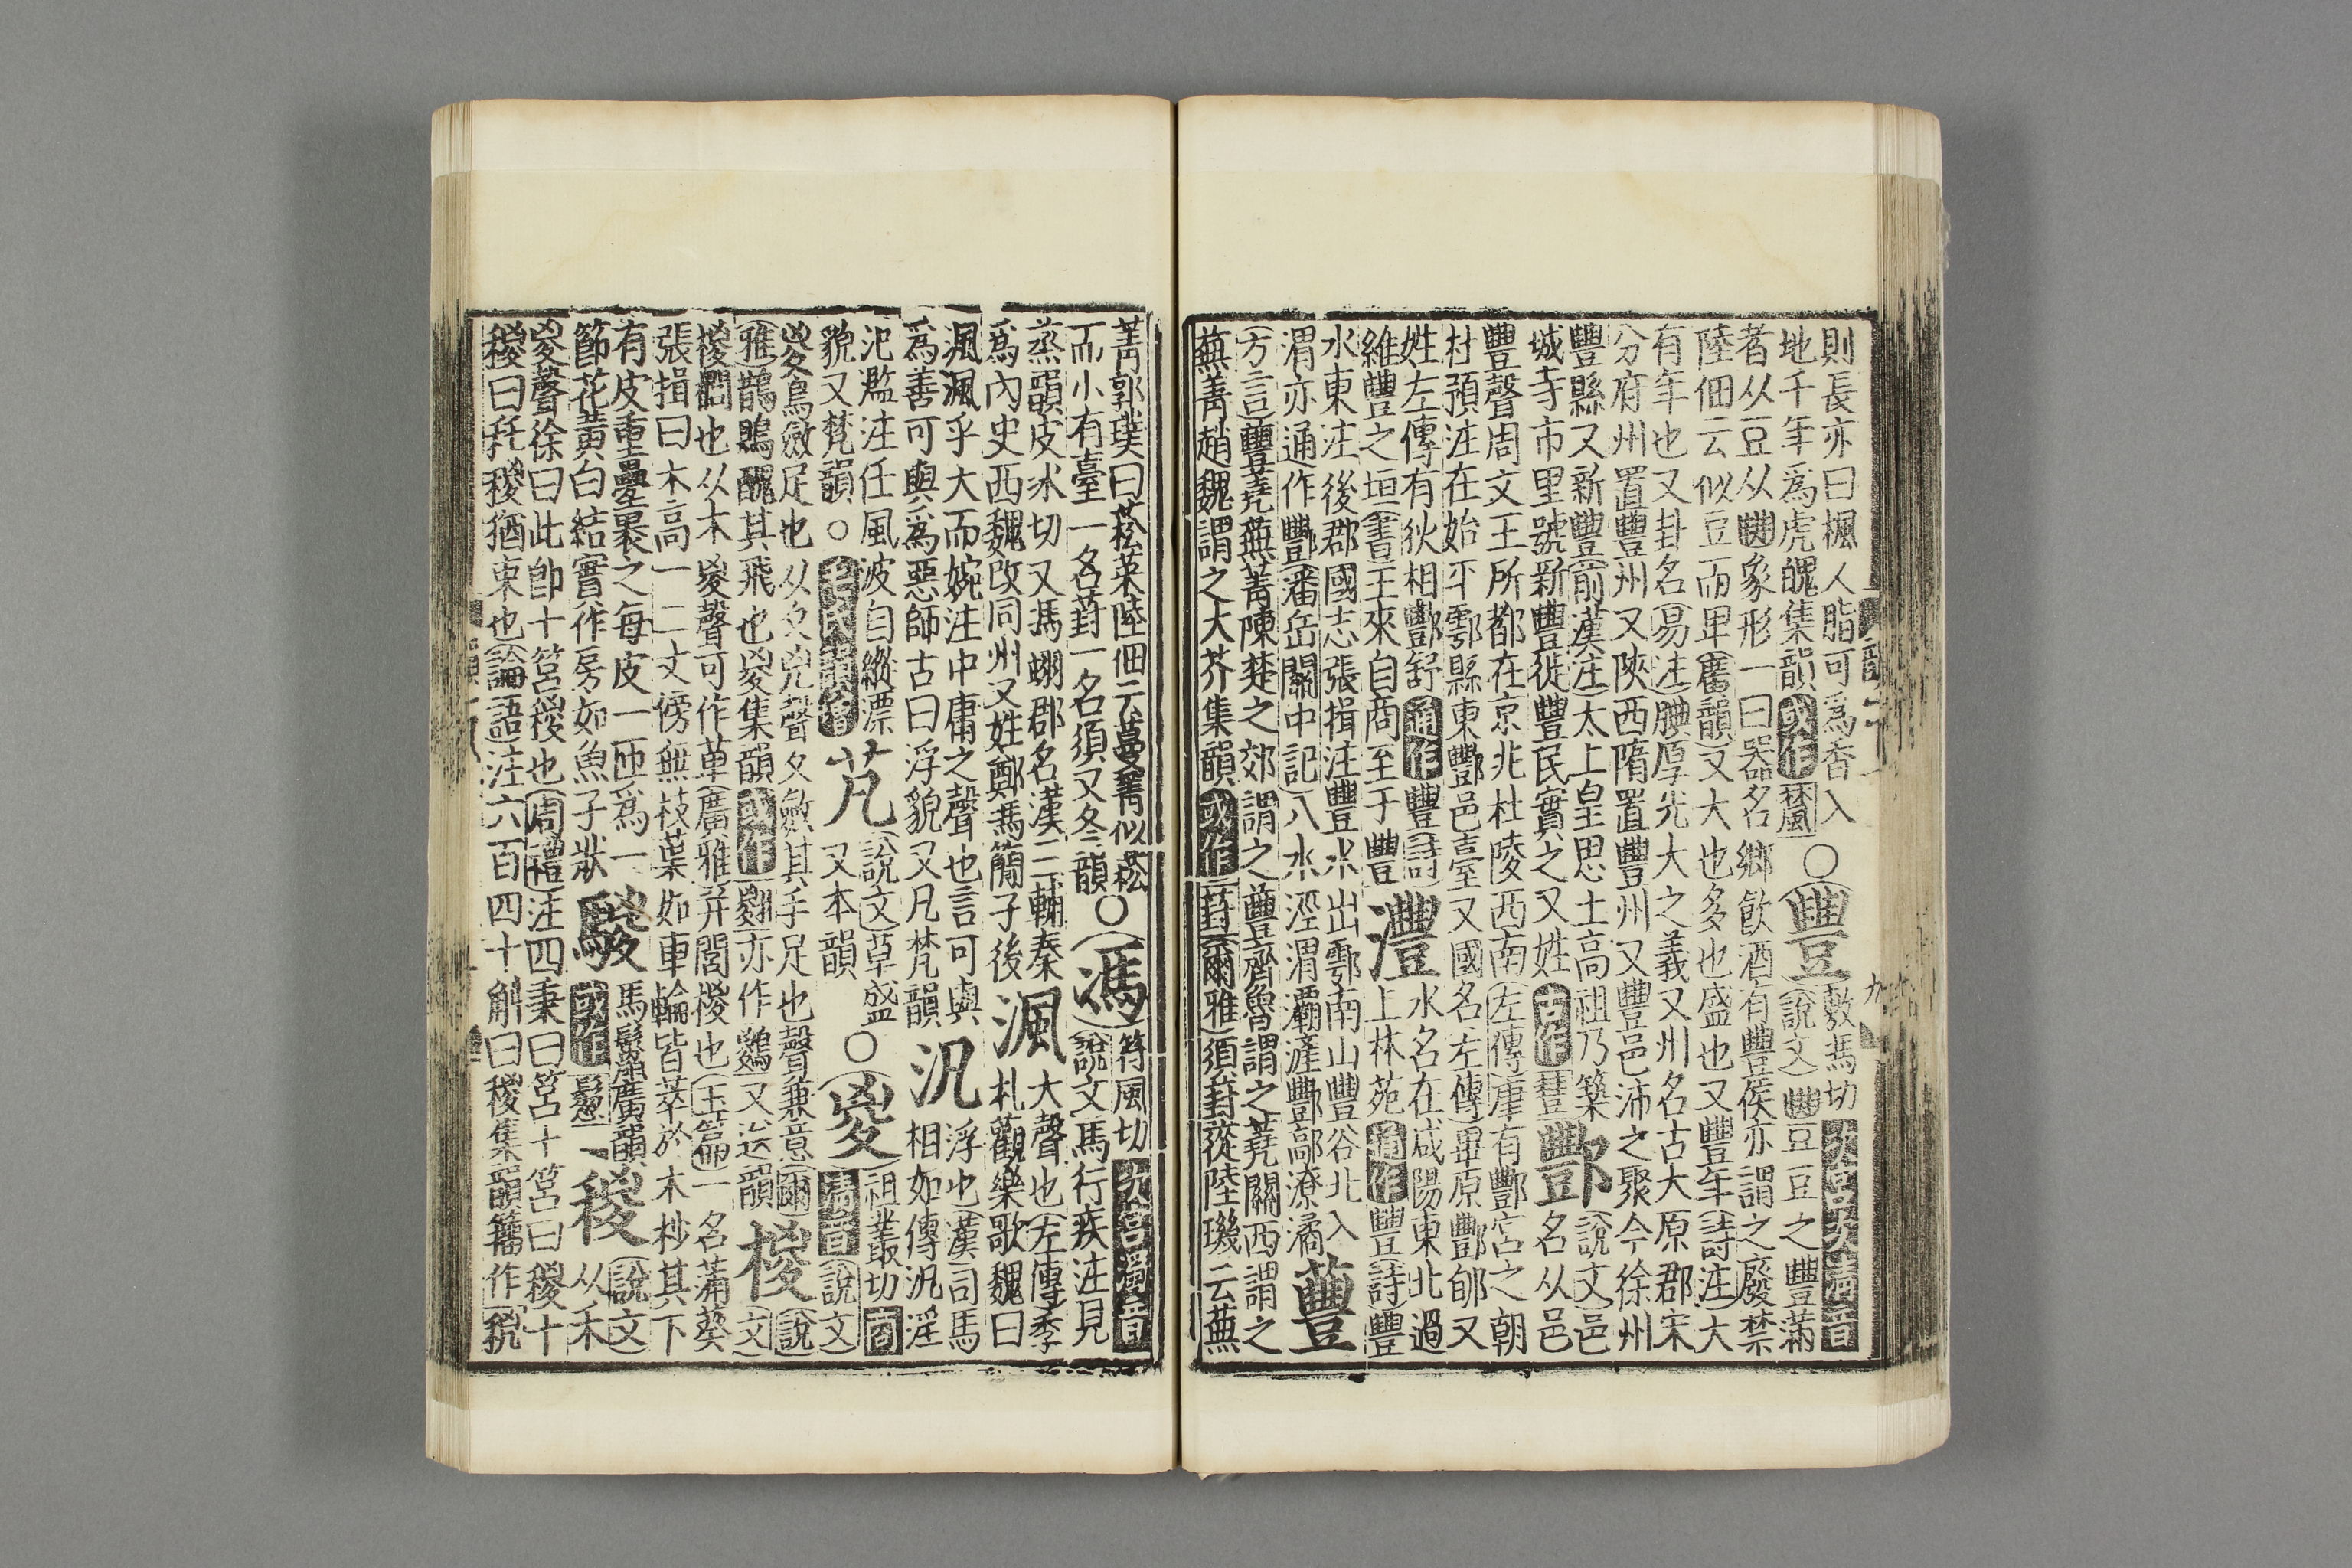 則長亦曰楓人脂可爲香入〇豐敷馮切次宮次清音
地千年爲虎魄集韻或作檒 說文豆之豐滿
者从豆从象形一曰器名鄉飲酒有豐侯亦謂之廢禁
陸佃云似豆而卑舊韻又大也多也盛也又豐年詩注大
有年也又卦名易注腆厚光大之義又州名古大原郡宋
分府州置豐州又陝西隋置豐州又豐邑沛之聚今徐州
豐縣又新豐前漢注太上皇思土高祖乃築
城寺市里號新豐徙豐民實之又姓古作 酆說文邑名从邑
豐聲周文王所都在京兆杜陵西南左傳康有酆宮之朝
杜預注在始平鄠縣東酆邑臺又國名左傳畢原酆郇又
姓左傳有狄相酆舒通作豐詩 灃水名在咸陽東北過
維豐之垣書王來自商至于豐 上林苑通作豐詩豐
水東注後郡國志張揖注豐水出鄠南山豐谷北入
渭亦通作酆潘岳關中記八水涇渭灞滻酆鄗潦潏 蘴
方言蘴蕘蕪菁陳楚之郊謂之蘴齊魯謂之蕘關西謂之
蕪菁趙魏謂之大芥集韻或作葑爾雅須葑蓯陸璣云蕪
菁郭璞曰菘菜陸佃云蔓菁似菘〇馮符風切次宮濁音
而小有臺一名葑一名須又冬韻 說文馬行疾注見
蒸韻皮冰切又馮翊郡名漢三輔秦
爲內史西魏改同州又姓鄭馮簡子後 渢大聲也左傳季札觀樂歌魏曰
渢渢乎大而婉注中庸之聲也言可與
爲善可與爲惡師古曰浮貌又凡梵韻 汎浮也漢司馬相如傳汎淫
氾濫注任風波自縱漂
貌又梵韻〇毛氏韻增芃說文草盛又本韻〇嵏祖叢切商清音說文
㚇鳥斂足也从夊兇聲夊斂其手足也聲兼意爾
雅鵲鵙醜其飛也㚇集韻或作翪亦作鷄又送韻 椶說文
椶櫚也从木㚇聲可作萆廣雅栟閭椶也玉篇一名蒲葵
張揖曰木高一二丈傍無枝葉如車輪皆萃於木杪其下
有皮重疊裹之每皮一匝爲一
節花黃白結實作房如魚子狀 騣馬鬛廣韻或作鬉 稯說文从禾
㚇聲徐曰此即十筥稯也周禮注四秉曰筥十筥曰稯十
稯曰秅稯猶束也論語注六百四十斛曰稯集韻籀作